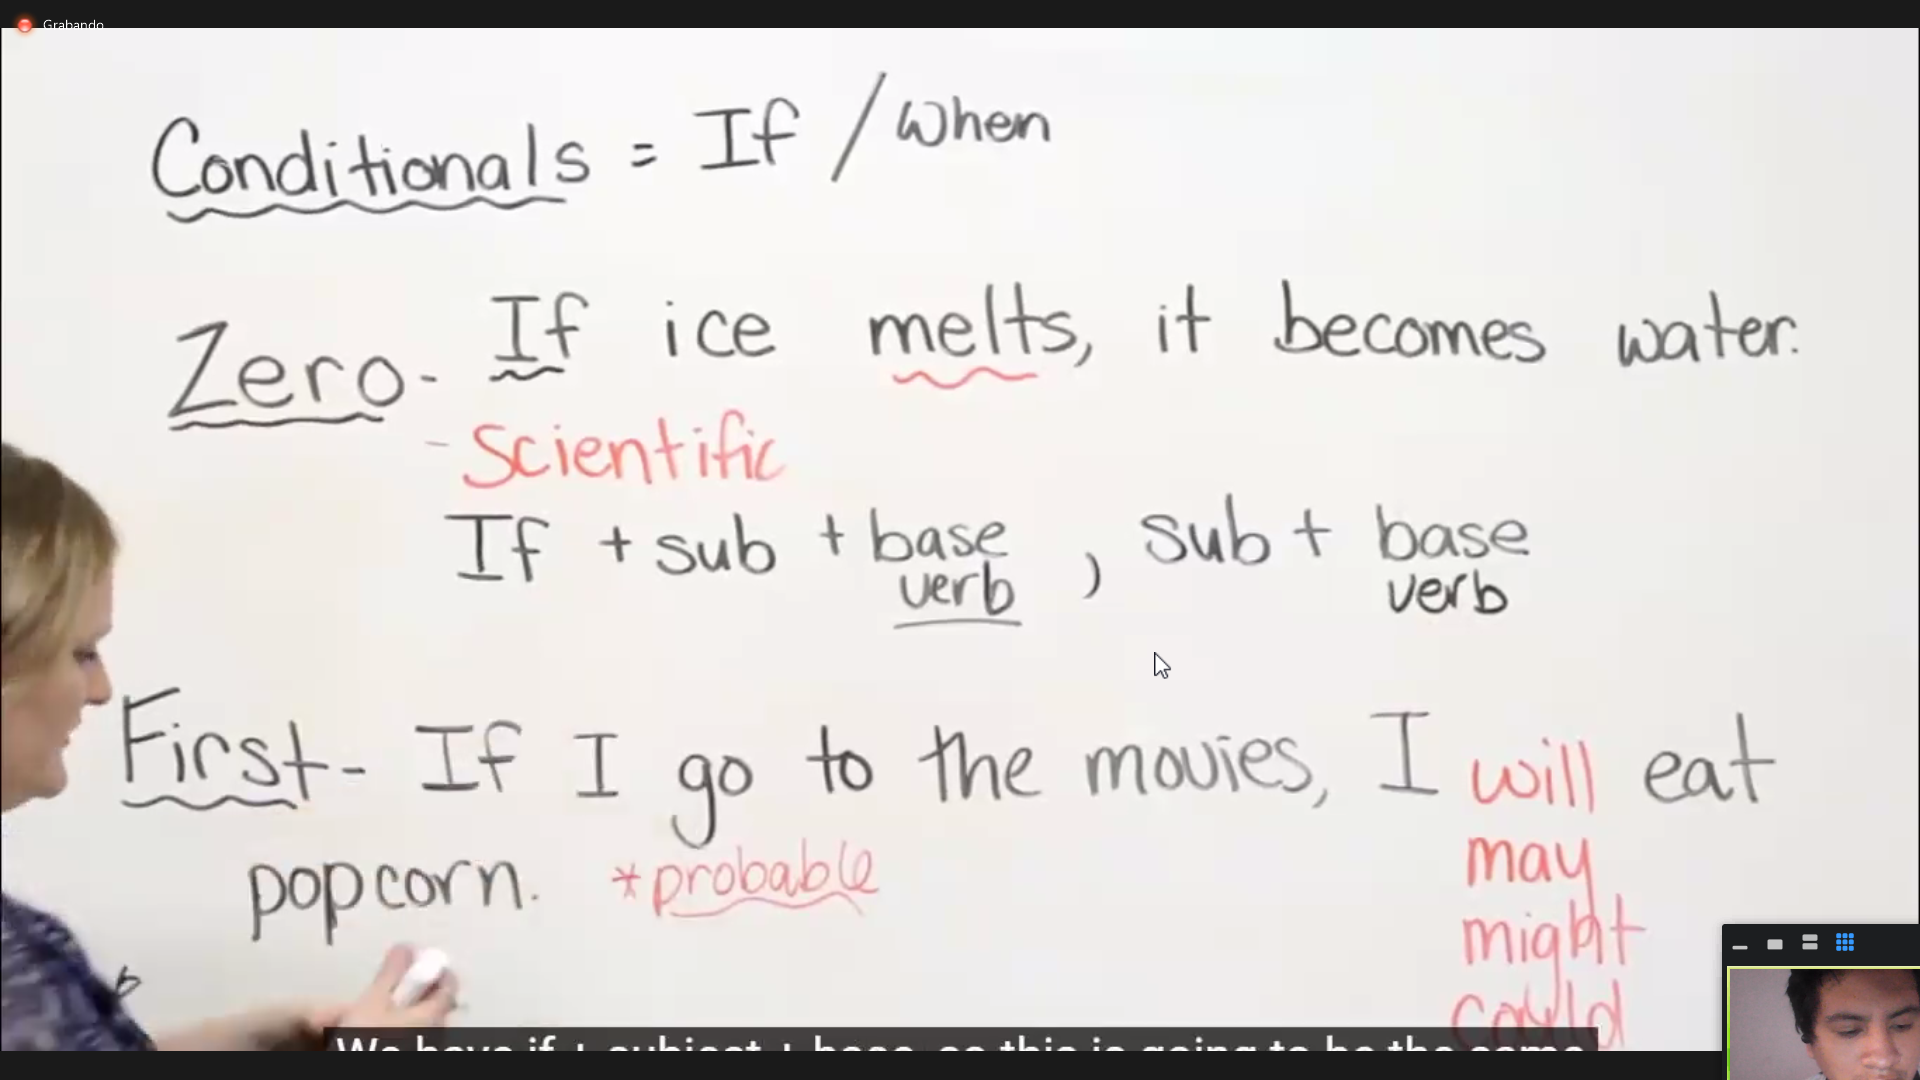 Grabando
Conditionals = If / When
Zero - If ice melts, it becomes water.
- Scientific
If + sub + base verb , sub + base verb
First - If I go to the movies, I will eat
may
popcorn. *probable
might
could
We have if + subject + base, so this is going to be the same